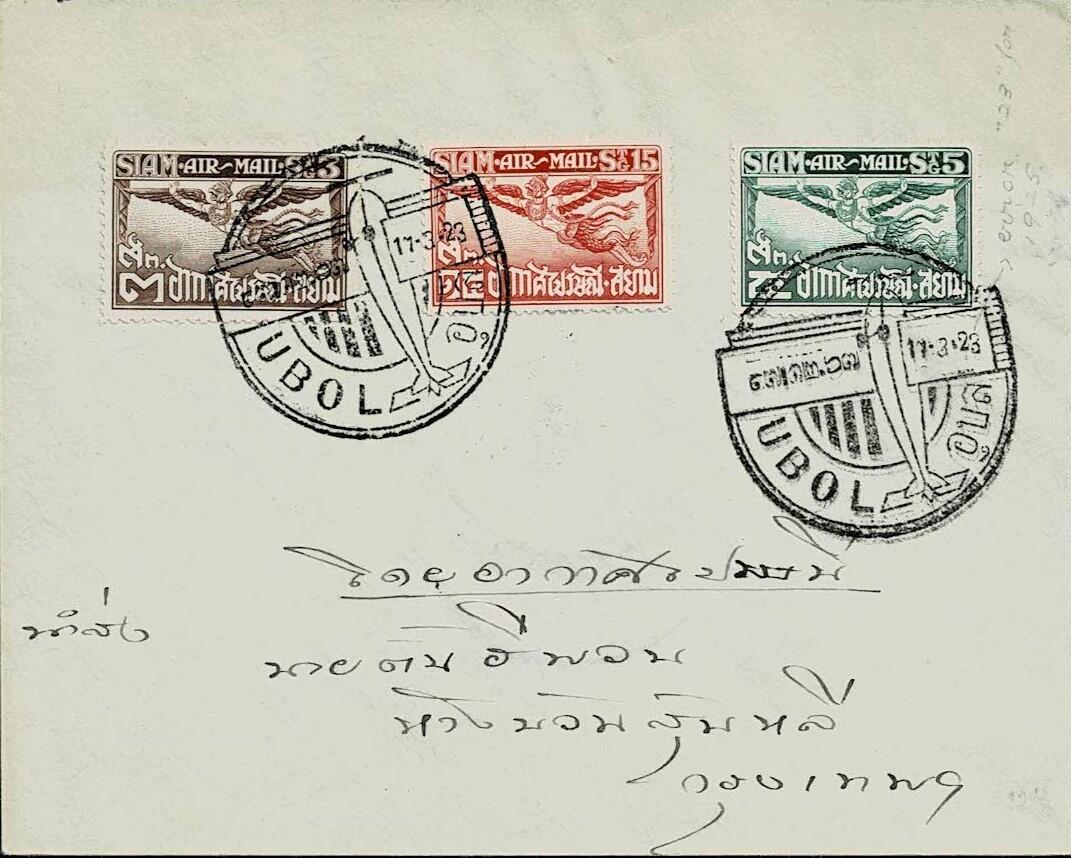 SIAM·AIR~MAIL·STG3
สต.
๓ อากาศไปรษณีย์·สยาม
SIAM·AIR~MAIL·STG15
สต.
๑๕ อากาศไปรษณีย์·สยาม
SIAM·AIR~MAIL·STG5
สต.
๕ อากาศไปรษณีย์·สยาม
11·3·23
UBOL
11·3·23
UBOL อุบล
โดยอากาศไปรษณีย์
นำส่ง
นายตันฮีพวน
ห้างบ้วนสุ่นหลี
กรุงเทพฯ
"23" for
error